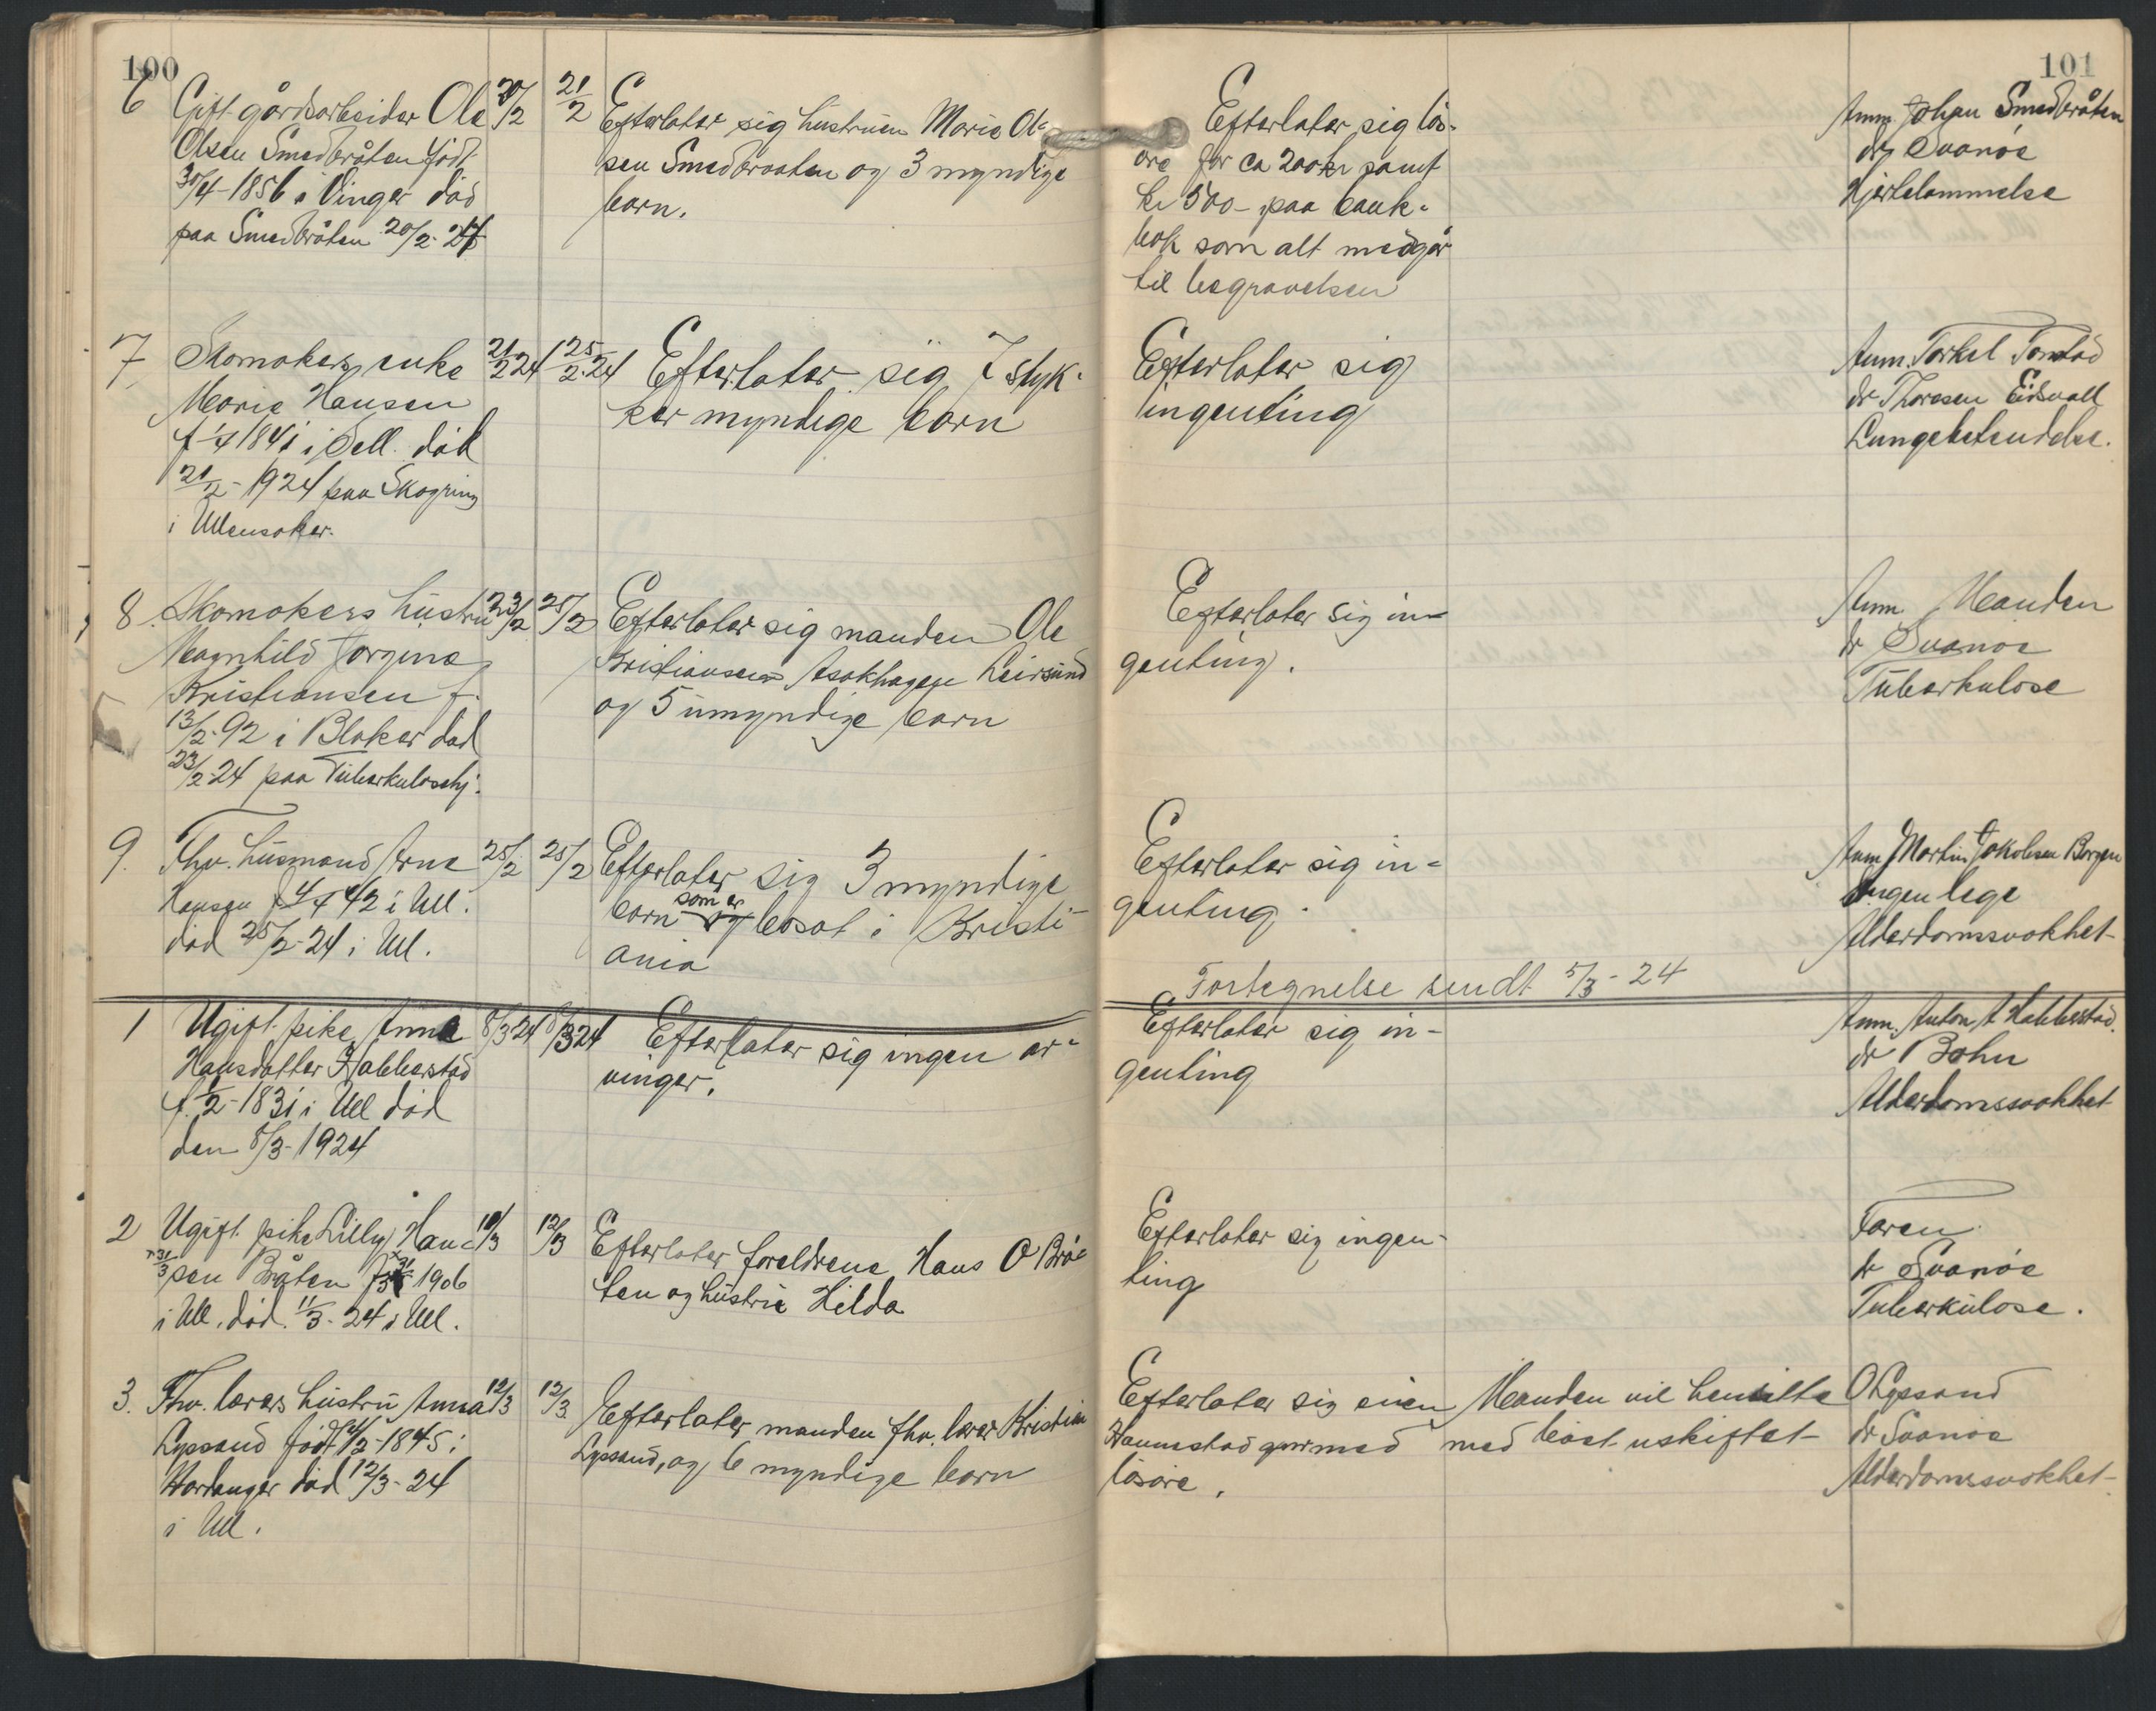 100
6 Gift gårdsarbeider Ole 20/2 21/2 Efterlater sig hustruen Marie Ol-
Olsen Smedbråten født
sen Smedbraaten og 3 myndige
30/4-1856 i Vinger død
barn.
paa Smedbråten 20/2-24
7 Skomakers enke 21/2 24 25/2-24 Efterlater sig 7 styk-
Marie Hansen
ker myndige barn
i Ull. død
21/2-1924 paa
i Ullensaker.
8. Skomakers hustru 23/2 25/2 Efterlater sig manden Ole
Magnhild Jorgine
Kristiansen Asakhagen Leirsund
Kristiansen f.
og 5 umyndige barn
13/2-92 i Blaker død
23/2-24 paa Tuberkulosehj.
9. Fhv. husmand Arne 25/2 25/2 Efterlater sig 3 myndige
Hansen f 4/4 42 i Ull.
barn som er bosat i Kristi-
død 25/2-24 i Ull.
ania
1 Ugift pike Anna 8/3 24 8/3 24 Efterlater sig ingen ar-
Hansdatter Habberstad
vinger.
f. 1/2-1831 i Ull død
den 8/3-1924
2 Ugift pike Lilly Han- 12/3 Efterlater foreldrene Hans O Brå-
x 31/3
sen Bråten 1906
ten og hustru Hilda
i Ull. død. 11/3-24 i Ull.
3. Fhv. lærers hustru Anna 12/3 12/3 Efterlater manden fhv. lærer Kristian
Lyssand født 1845 i
Lyssand, og 6 myndige barn
Hardanger død 12/3-24
i Ull.
101
Efterlater sig løs-
øre for ca 200 kr samt
kr 500- paa bank-
bok som alt medgår
til begravelsen
Anm. Johan Smedbråten
dr Svanøe
Hjertelammelse
Efterlater sig
ingenting
Anm. Torkel
dr Thoresen Eidsvoll
Lungebetendelse.
Efterlater sig in-
genting.
Anm. Manden
dr Svanøe
Tuberkulose
Efterlater sig in-
genting.
Anm Martin Jakobsen Borgen
Ingen lege
Alderdomssvakhet
Fortegnelse sendt 5/3-24
Efterlater sig in-
genting
Anm. Anton A Habberstad.
dr Bohn
Alderdomssvakhet
Efterlater sig ingen-
ting
Faren
dr Svanøe
Tuberkulose.
Efterlater sig eien- Manden vil hensitte O Lyssand
med med boet uskiftet dr Svanøe
løsøre. Alderdomssvakhet